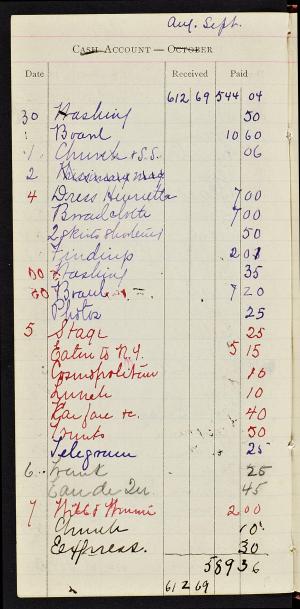 Aug. Sept.
CASH ACCOUNT — OCTOBER
Date Received Paid
612 69 544 04
30 Washing 50
: Board 10 60
1 Church & S.S. 06
2 Missionary mag
4 Dress Henrietta 7 00
Broadcloth 7 00
2 skirts shortened 50
Findings 2 01
DO Washing 35
GO Board 7 20
Photos 25
5 Stage 25
Eaten to N.Y. 5 15
Cosmopolitan 10
Lunch 10
Car fare &c. 40
Trunks 50
Telegram 25
6 Trunk 25
Eau de Qu. 45
7 Will & Minnie 2 00
Church 10
Express. 30
589 36
612 69